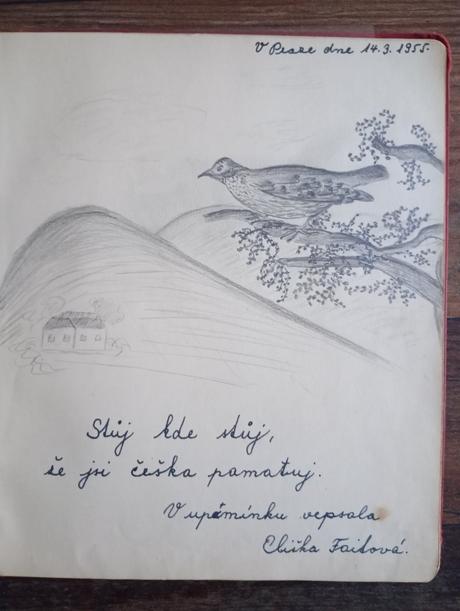 V dne 14.3.1955.
Stůj kde stůj,
že jsi češka pamatuj.
V upomínku vepsala
Eliška Faitová.